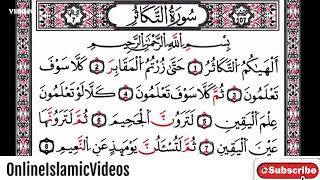 سُورَةُ التَّكَاثُرِ
بِسْمِ اللَّهِ الرَّحْمَٰنِ الرَّحِيمِ
أَلْهَاكُمُ التَّكَاثُرُ ١ حَتَّىٰ زُرْتُمُ الْمَقَابِرَ ٢ كَلَّا سَوْفَ
تَعْلَمُونَ ٣ ثُمَّ كَلَّا سَوْفَ تَعْلَمُونَ ٤ كَلَّا لَوْ تَعْلَمُونَ
عِلْمَ الْيَقِينِ ٥ لَتَرَوُنَّ الْجَحِيمَ ٦ ثُمَّ لَتَرَوُنَّهَا
عَيْنَ الْيَقِينِ ٧ ثُمَّ لَتُسْأَلُنَّ يَوْمَئِذٍ عَنِ النَّعِيمِ ٨
OnlineIslamicVideos
Subscribe